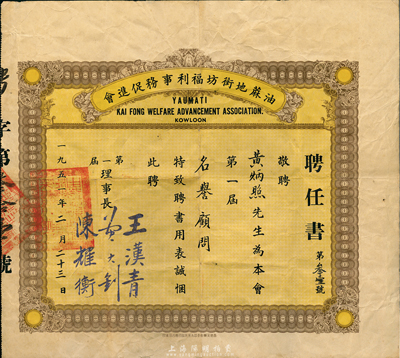 油蔴地街坊福利事務促進會
YAUMATI
KAI FONG WELFARE ADVANCEMENT ASSOCIATION.
KOWLOON
聘任書
第叁壹號
敬聘
黃炳照先生為本會
第一屆
名譽顧問
特致聘書用表誠悃
此聘
第一屆理事長
王漢青
黃大釗
陳耀衡
一九五一年二月二十三日
聘字第
號
上海陽明拍賣